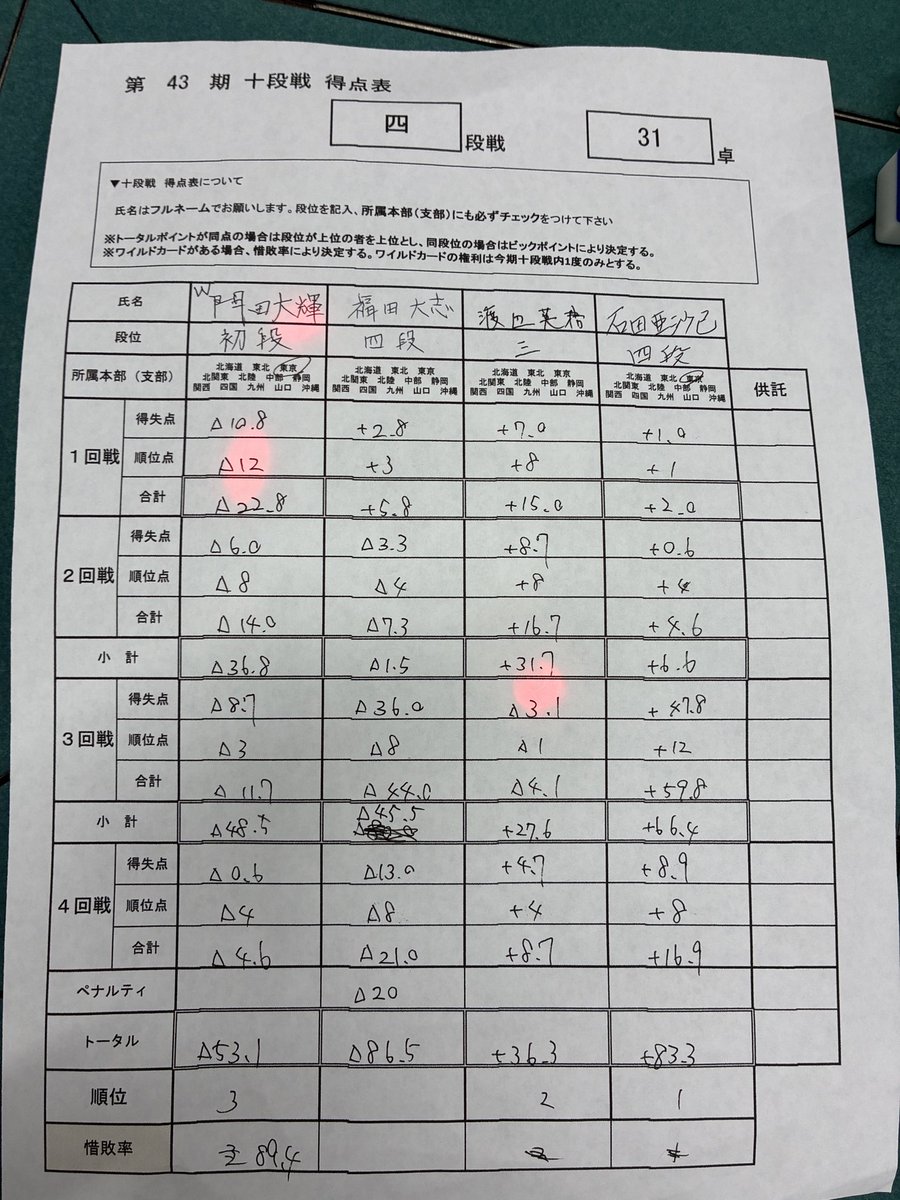 第 43 期 十段戦 得点表
四 段戦 31 卓
▼十段戦 得点表について
氏名はフルネームでお願いします。段位を記入、所属本部(支部)にも必ずチェックをつけて下さい
※トータルポイントが同点の場合は段位が上位の者を上位とし、同段位の場合はピックポイントにより決定する。
※ワイルドカードがある場合、惜敗率により決定する。ワイルドカードの権利は今期十段戦内1度のみとする。
氏名 W 門田大輝 福田大志 渡辺英 石田亜沙己
段位 初段 四段 三 四段
所属本部(支部) 供託
北海道 東北 東京 北海道 東北 東京 北海道 東北 東京 北海道 東北 東京
北関東 北陸 中部 静岡 北関東 北陸 中部 静岡 北関東 北陸 中部 静岡 北関東 北陸 中部 静岡
関西 四国 九州 山口 沖縄 関西 四国 九州 山口 沖縄 関西 四国 九州 山口 沖縄 関西 四国 九州 山口 沖縄
1回戦
得失点 △10.8 +2.8 +7.0 +1.0
順位点 △12 +3 +8 +1
合計 △22.8 +5.8 +15.0 +2.0
2回戦
得失点 △6.0 △3.3 +8.7 +0.6
順位点 △8 △4 +8 +4
合計 △14.0 △7.3 +16.7 +4.6
小 計 △36.8 △1.5 +31.7 +6.6
3回戦
得失点 △8.7 △36.0 △3.1 +47.8
順位点 △3 △8 △1 +12
合計 △11.7 △44.0 △4.1 +59.8
小 計 △48.5 △45.5 +27.6 +66.4
4回戦
得失点 △0.6 △13.0 +4.7 +8.9
順位点 △4 △8 +4 +8
合計 △4.6 △21.0 +8.7 +16.9
ペナルティ △20
トータル △53.1 △86.5 +36.3 +83.3
順位 3 2 1
惜敗率 89.4